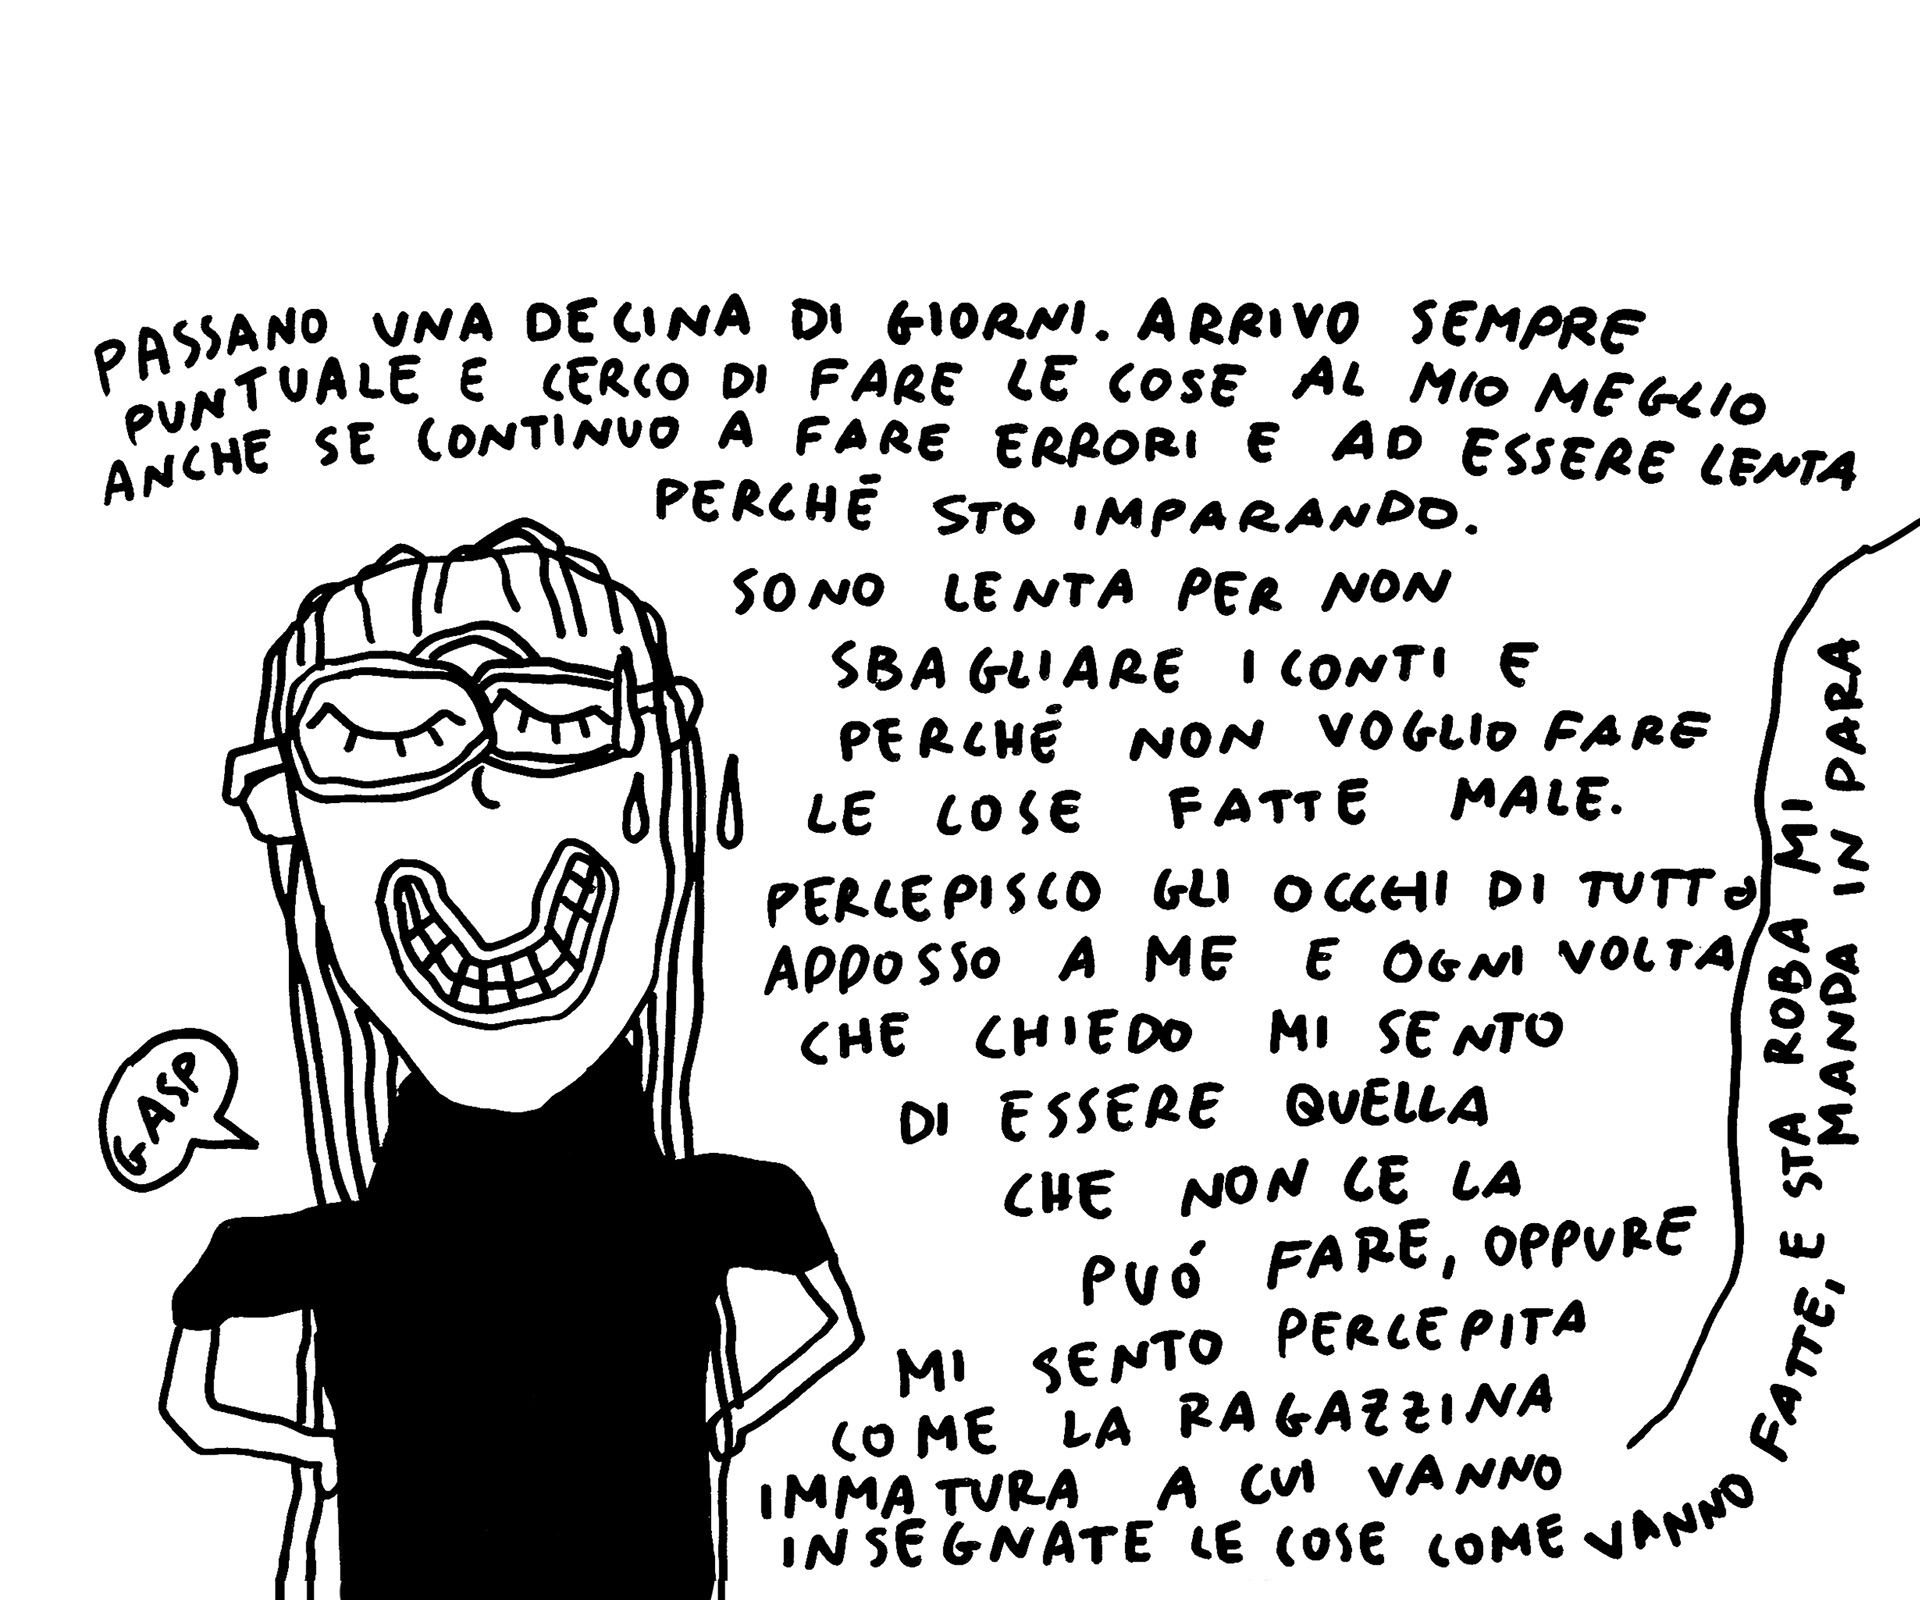 PASSANO UNA DECINA DI GIORNI. ARRIVO SEMPRE
PUNTUALE E CERCO DI FARE LE COSE AL MIO MEGLIO
ANCHE SE CONTINUO A FARE ERRORI E AD ESSERE LENTA
PERCHÉ STO IMPARANDO.
SONO LENTA PER NON
SBAGLIARE I CONTI E
PERCHÉ NON VOGLIO FARE
LE COSE FATTE MALE.
PERCEPISCO GLI OCCHI DI TUTTƏ
ADDOSSO A ME E OGNI VOLTA
CHE CHIEDO MI SENTO
DI ESSERE QUELLA
CHE NON CE LA
PUÓ FARE, OPPURE
MI SENTO PERCEPITA
COME LA RAGAZZINA
IMMATURA A CUI VANNO
INSEGNATE LE COSE COME VANNO FATTE, E STA ROBA MI
MANDA IN PARA
GASP